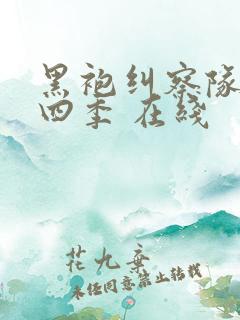 黑袍纠察队
四季 在线
花九奔
未经同意禁止转载